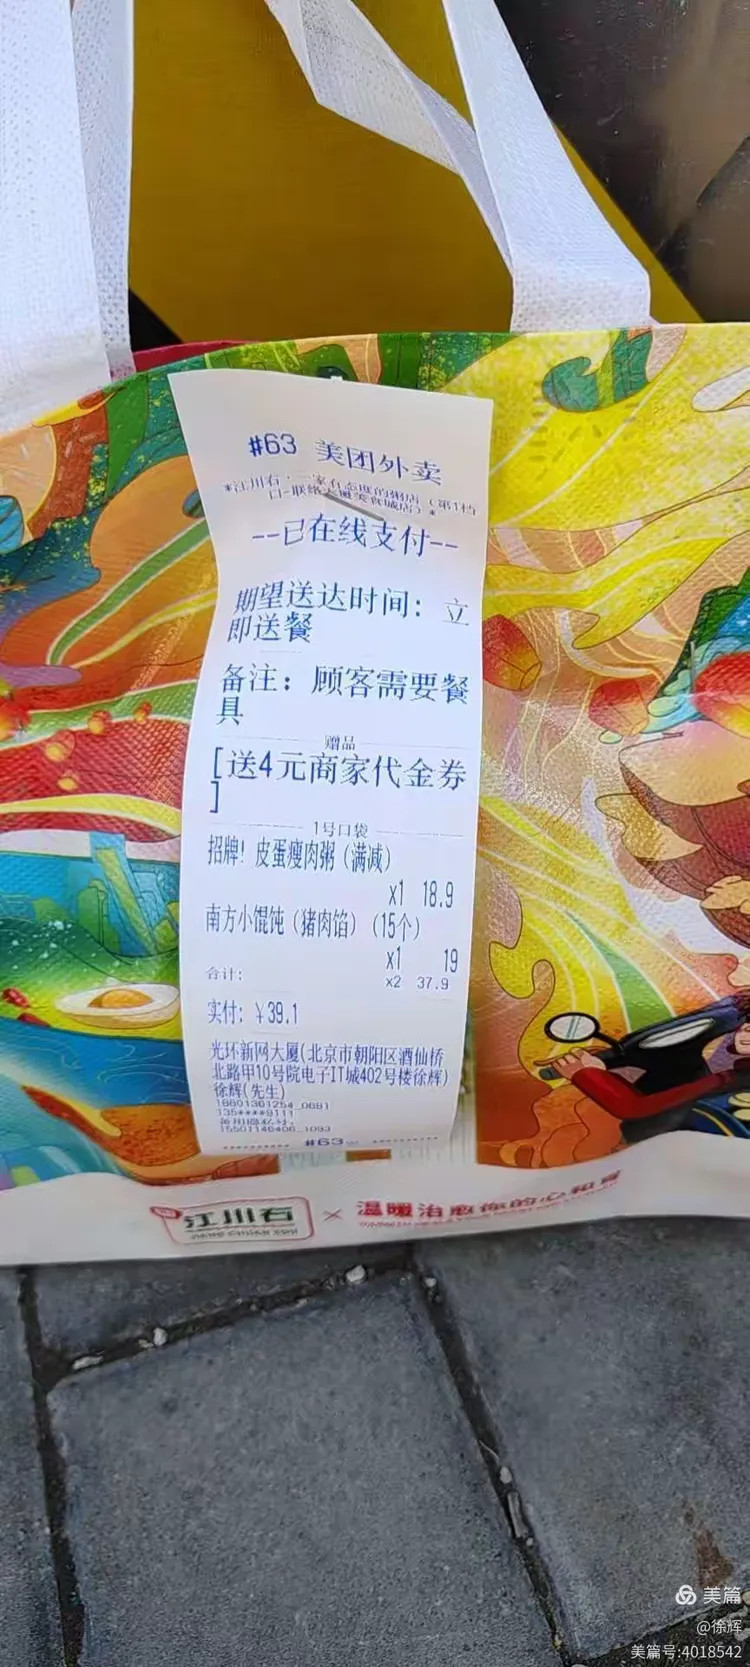 #63 美团外卖
*江川右·一家有态度的粥店（第1档
口-联络大厦美食城店）*
--已在线支付--
期望送达时间：立
即送餐
备注：顾客需要餐
具
赠品
[送4元商家代金券
]
1号口袋
招牌！皮蛋瘦肉粥（满减）
x1 18.9
南方小馄饨（猪肉馅）（15个）
x1 19
合计： x2 37.9
实付：￥39.1
光环新网大厦(北京市朝阳区酒仙桥
北路甲10号院电子IT城402号楼徐辉)
徐辉(先生)
135****9111
#63
江川右 × 温暖治愈你的心和胃
美篇
@徐辉
美篇号:4018542